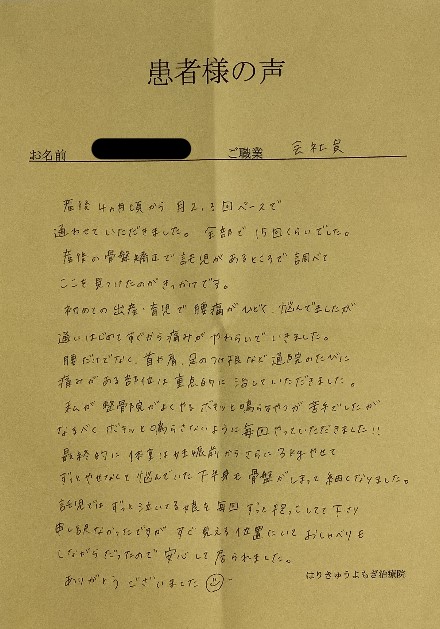 患者様の声
お名前 ご職業 会社員
産後4ヵ月頃から月2、3回ペースで
通わせていただきました。全部で15回くらいでした。
産後の骨盤矯正で託児があるところで調べて
ここを見つけたのがきっかけです。
初めての出産・育児で腰痛がひどく、悩んでましたが
通いはじめてすぐから痛みがやわらいでいきました。
腰だけでなく、首や肩、足のつけ根など通院のたびに
痛みがある部位は重点的に治していただきました。
私が整骨院がよくやるボキッと鳴らすやつが苦手でしたが
なるべくボキッと鳴らさないように毎回やっていただきました!!
最終的に体重は妊娠前からさらに3kgやせて
ずっとやせなくて悩んでいた下半身も骨盤がしまって細くなりました。
託児ではずっと泣いてる娘を毎回ずっと抱っこして下さり
申し訳なかったですが すぐ見える位置にいておしゃべりを
しながらだったので安心して居られました。
ありがとうございました
はりきゅうよもぎ治療院